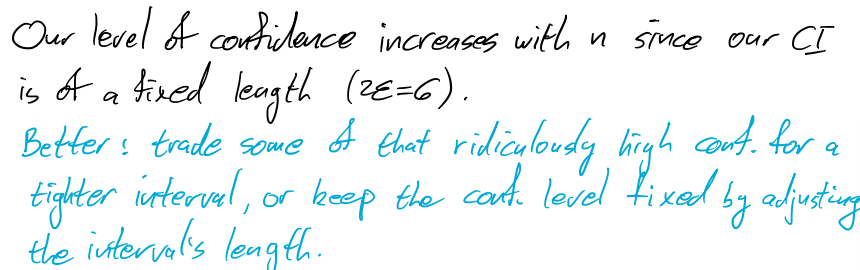 Our level of confidence increases with n since our CI
is of a fixed length (2ε=6).
Better: trade some of that ridiculously high conf. for a
tighter interval, or keep the conf. level fixed by adjusting
the interval's length.